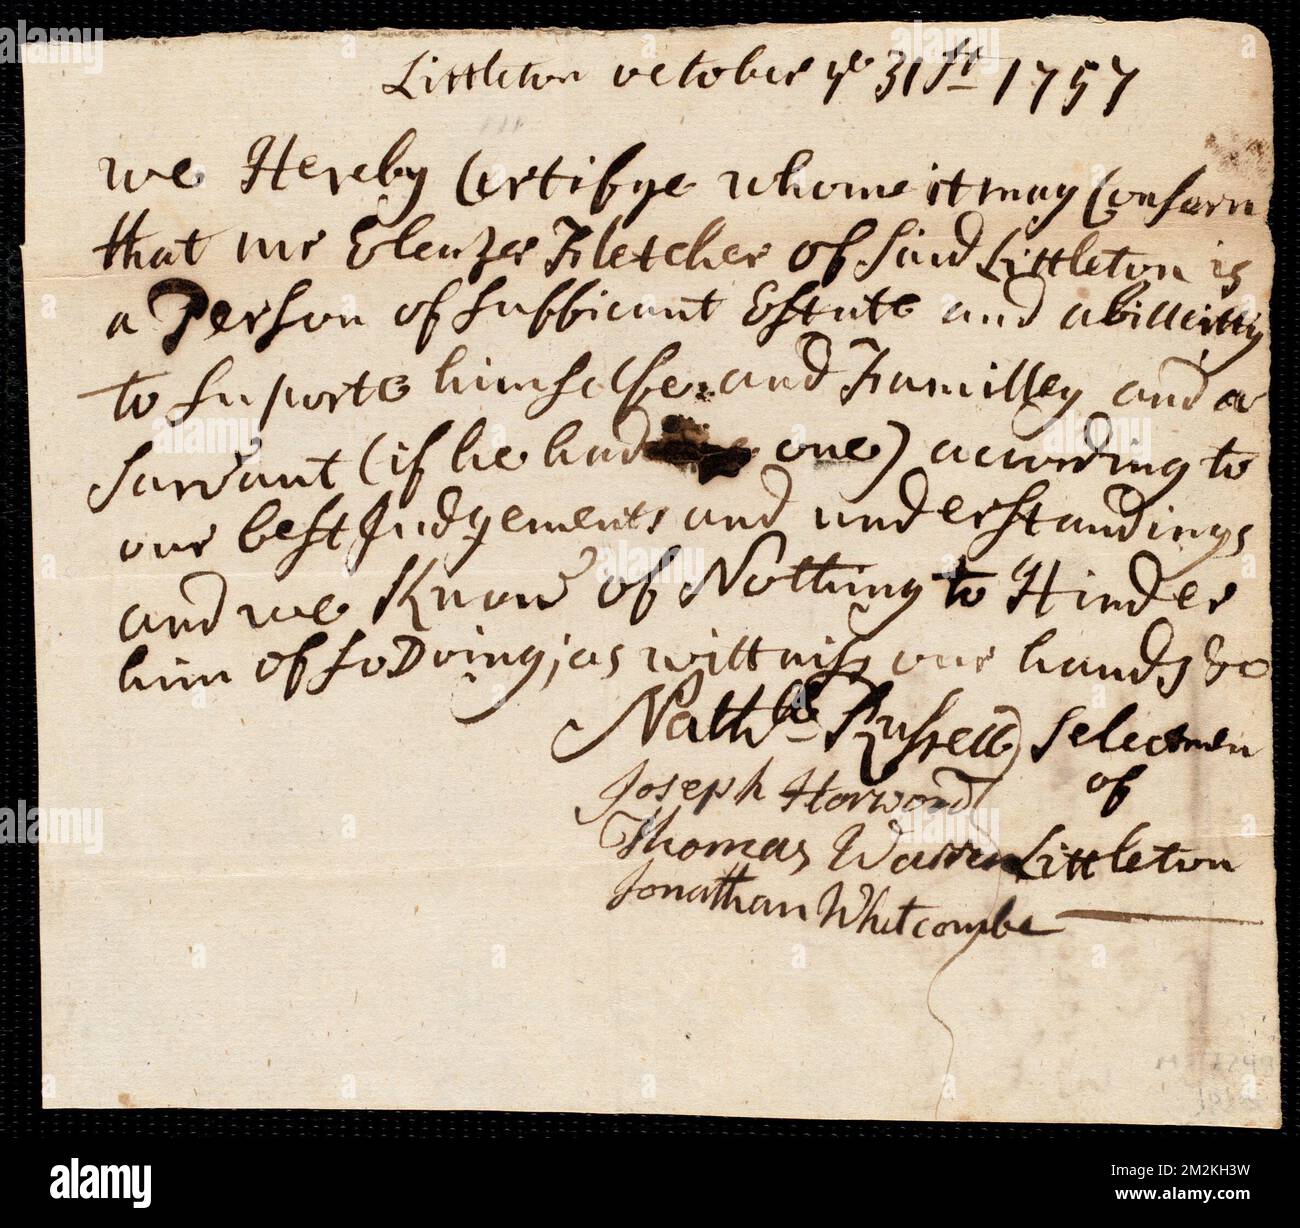 Littleton october ye 31st 1757
we Hereby Certifye whome it may Consern
that mr Ebenzer Fletcher of said Littleton is
a Person of sufficant Estate and abillitty
to suporte himselfe and Familley and a
sarvant (if he had one) according to
our best Judgements and understandings
and we Know of Nothing to Hinder
him of so Doing; as wittniss our hands &c
Nathll Russell Selectmen
Joseph Harwood of
Thomas Warren Littleton
Jonathan Whitcombe
alamy
www.alamy.com
Image ID: 2M2KH3W